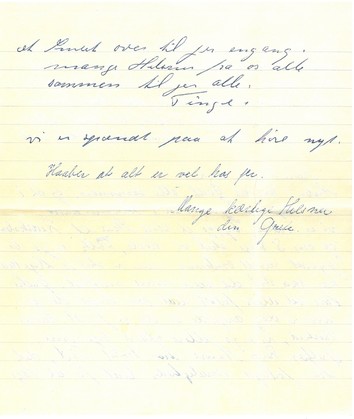 at smut over til jer engang.
mange Hilsner fra os alle
sammen til jer alle.
Tinge.
vi er spændt paa at høre nyt.
Haaber at alt er vel hos jer.
Mange kærlige Hilsner
din